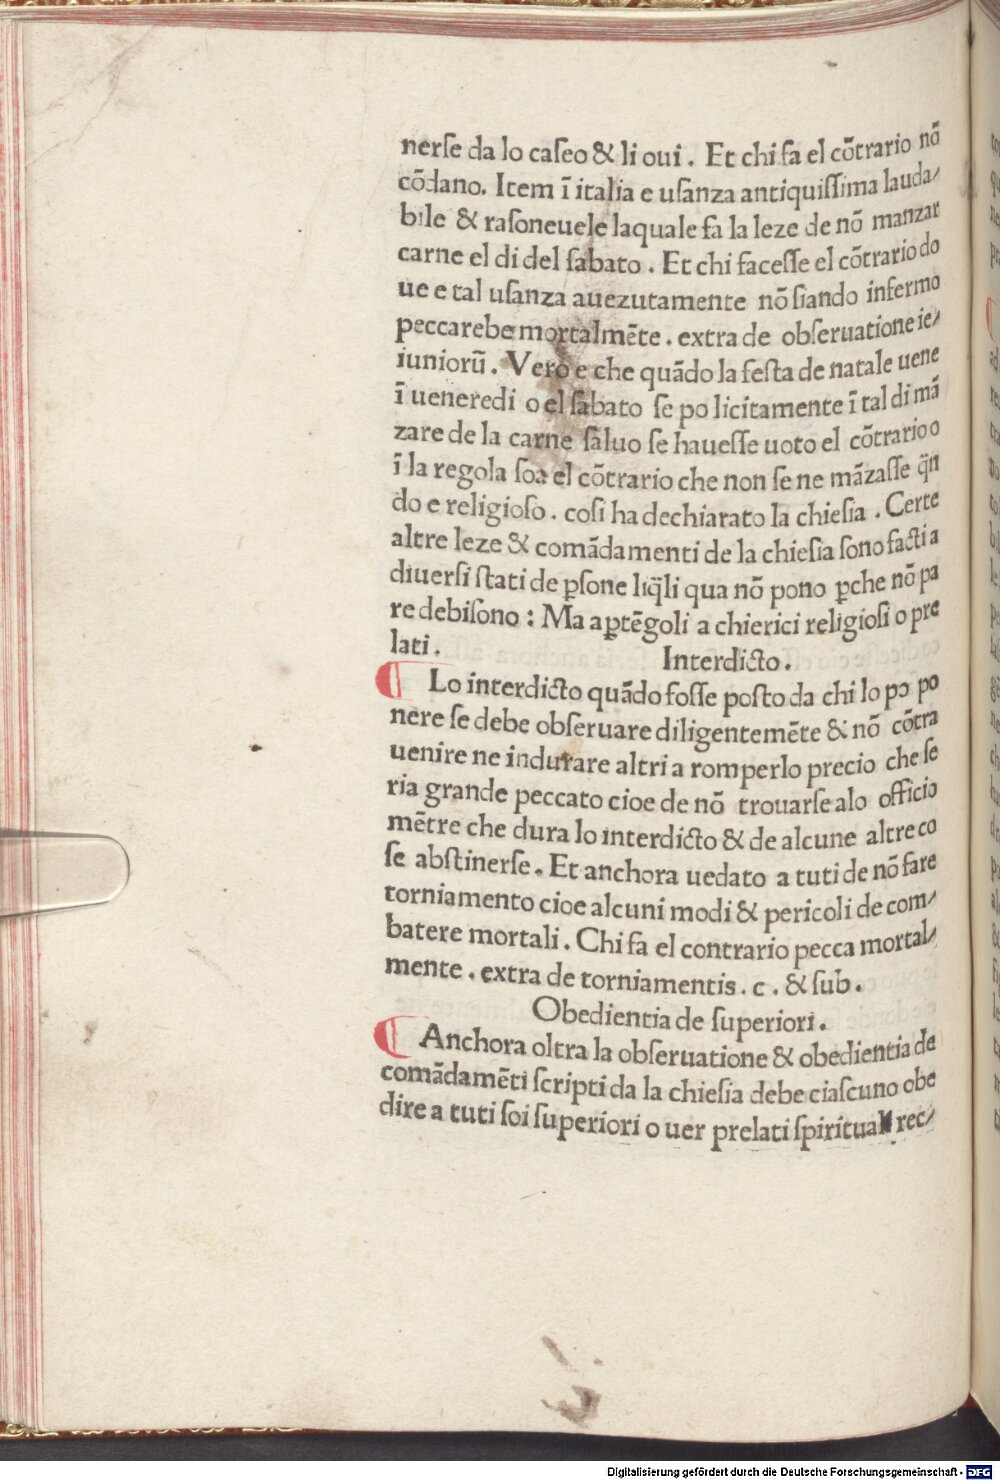 nerſe da lo caſeo & li oui . Et chi fa el cõtrario nõ
cõdano. Item ĩ italia e uſanza antiquiſſima lauda⸗
bile & raſoneuele laquale fa la leze de nõ manzar
carne el di del ſabato . Et chi faceſſe el cõtrario do
ue e tal uſanza auezutamente nõ ſiando infermo
peccarebe mortalmẽte . extra de obſeruatione ie⸗
iuniorũ . Vero e che quãdo la feſta de natale uene
ĩ ueneredi o el ſabato ſe po licitamente ĩ tal di mã
zare de la carne ſaluo ſe haueſſe uoto el cõtrario o
ĩ la regola ſoa el cõtrario che non ſe ne mãzaſſe q̃n
do e religioſo . coſi ha dechiarato la chieſia . Certe
altre leze & comãdamenti de la chieſia ſono facti a
diuerſi ſtati de ꝑſone liq̃li qua nõ pono ꝑche nõ pa
re debiſono : Ma aꝑtẽgoli a chierici religioſi o pre
lati . Interdicto .
Lo interdicto quãdo foſſe poſto da chi lo pɔ po
nere ſe debe obſeruare diligentemẽte & nõ cõtra
uenire ne indurare altri a romperlo precio che ſe
ria grande peccato cioe de nõ trouarſe alo officio
mẽtre che dura lo interdicto & de alcune altre co
ſe abſtinerſe . Et anchora uedato a tuti de nõ fare
torniamento cioe alcuni modi & pericoli de com⸗
batere mortali . Chi fa el contrario pecca mortal⸗
mente . extra de torniamentis . c . & ſub .
Obedientia de ſuperiori .
Anchora oltra la obſeruatione & obedientia de
comãdamẽti ſcripti da la chieſia debe ciaſcuno obe
dire a tuti ſoi ſuperiori o uer prelati ſpirituali rec⸗
Digitalisierung gefördert durch die Deutsche Forschungsgemeinschaft - DFG